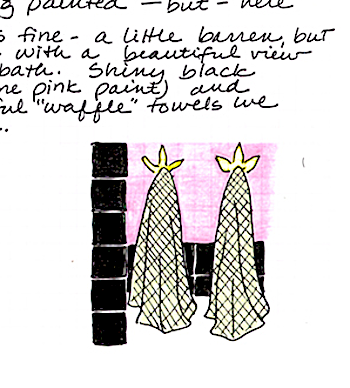 painted — but — here
fine - a little barren, but
with a beautiful view
bath. Shiny black
pink paint) and
"waffle" towels we
..